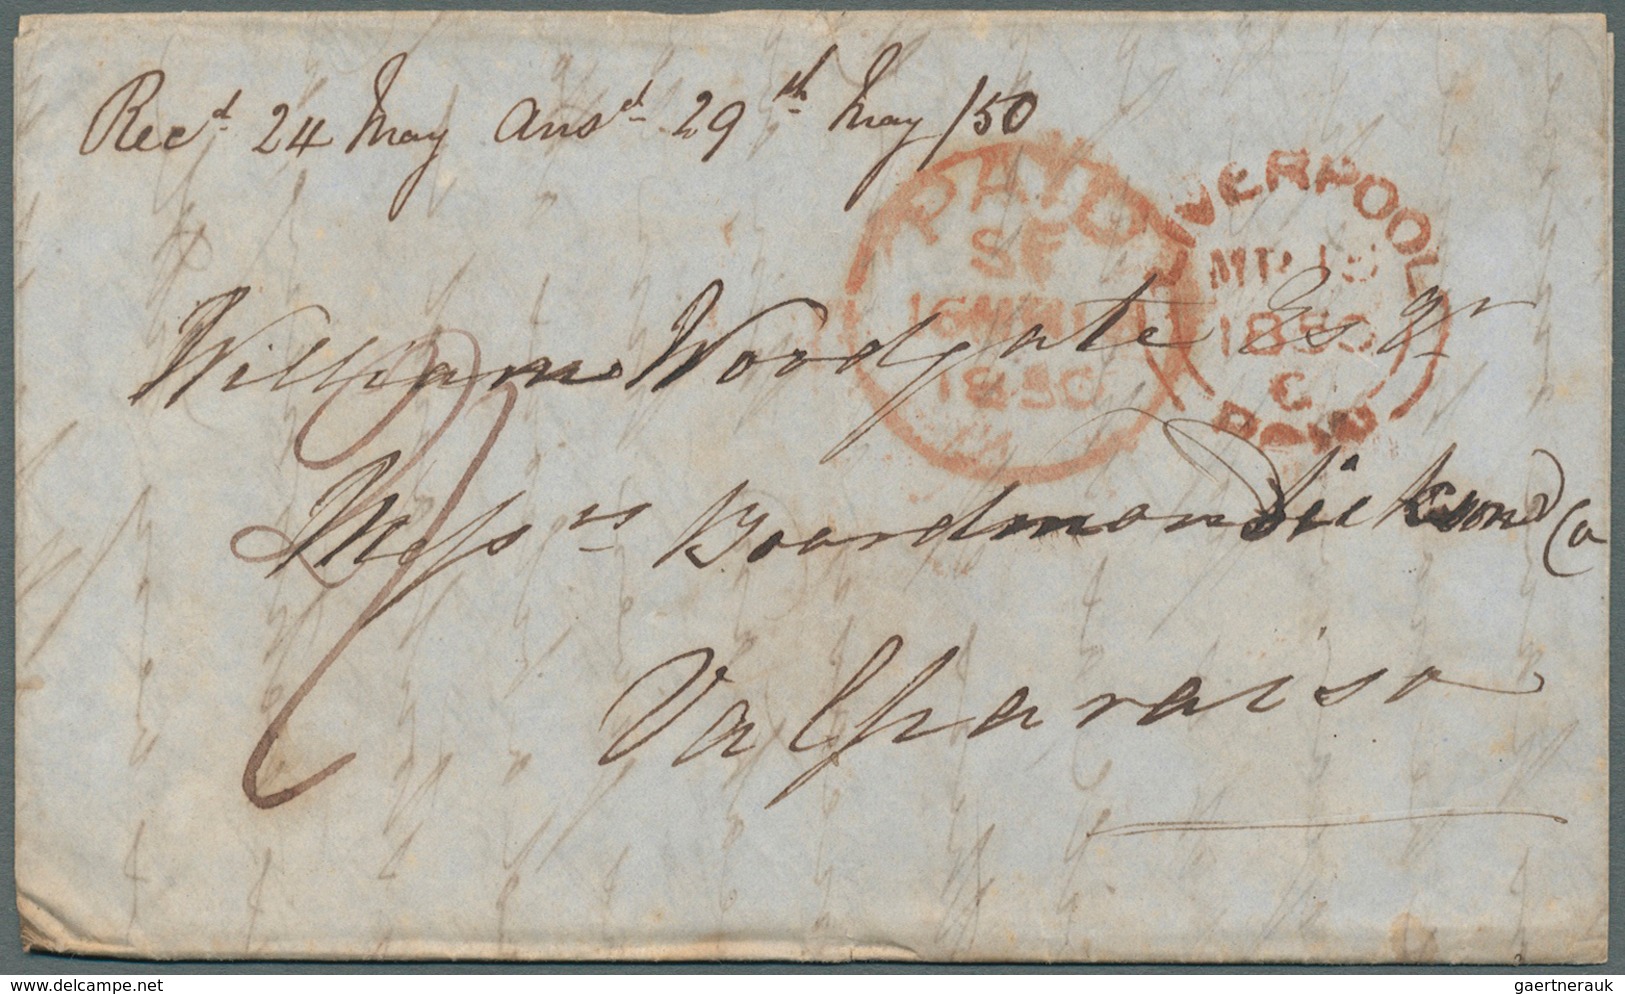 Recd 24 May Ansd 29th May /50
PAID
SF
16 MR 16
1850
LIVERPOOL
MR 15
1850
C
PAID
William Woodgate Esqr
Messrs Boardman Dickson & Co
Valparaiso
www.delcampe.net
gaertnerauk